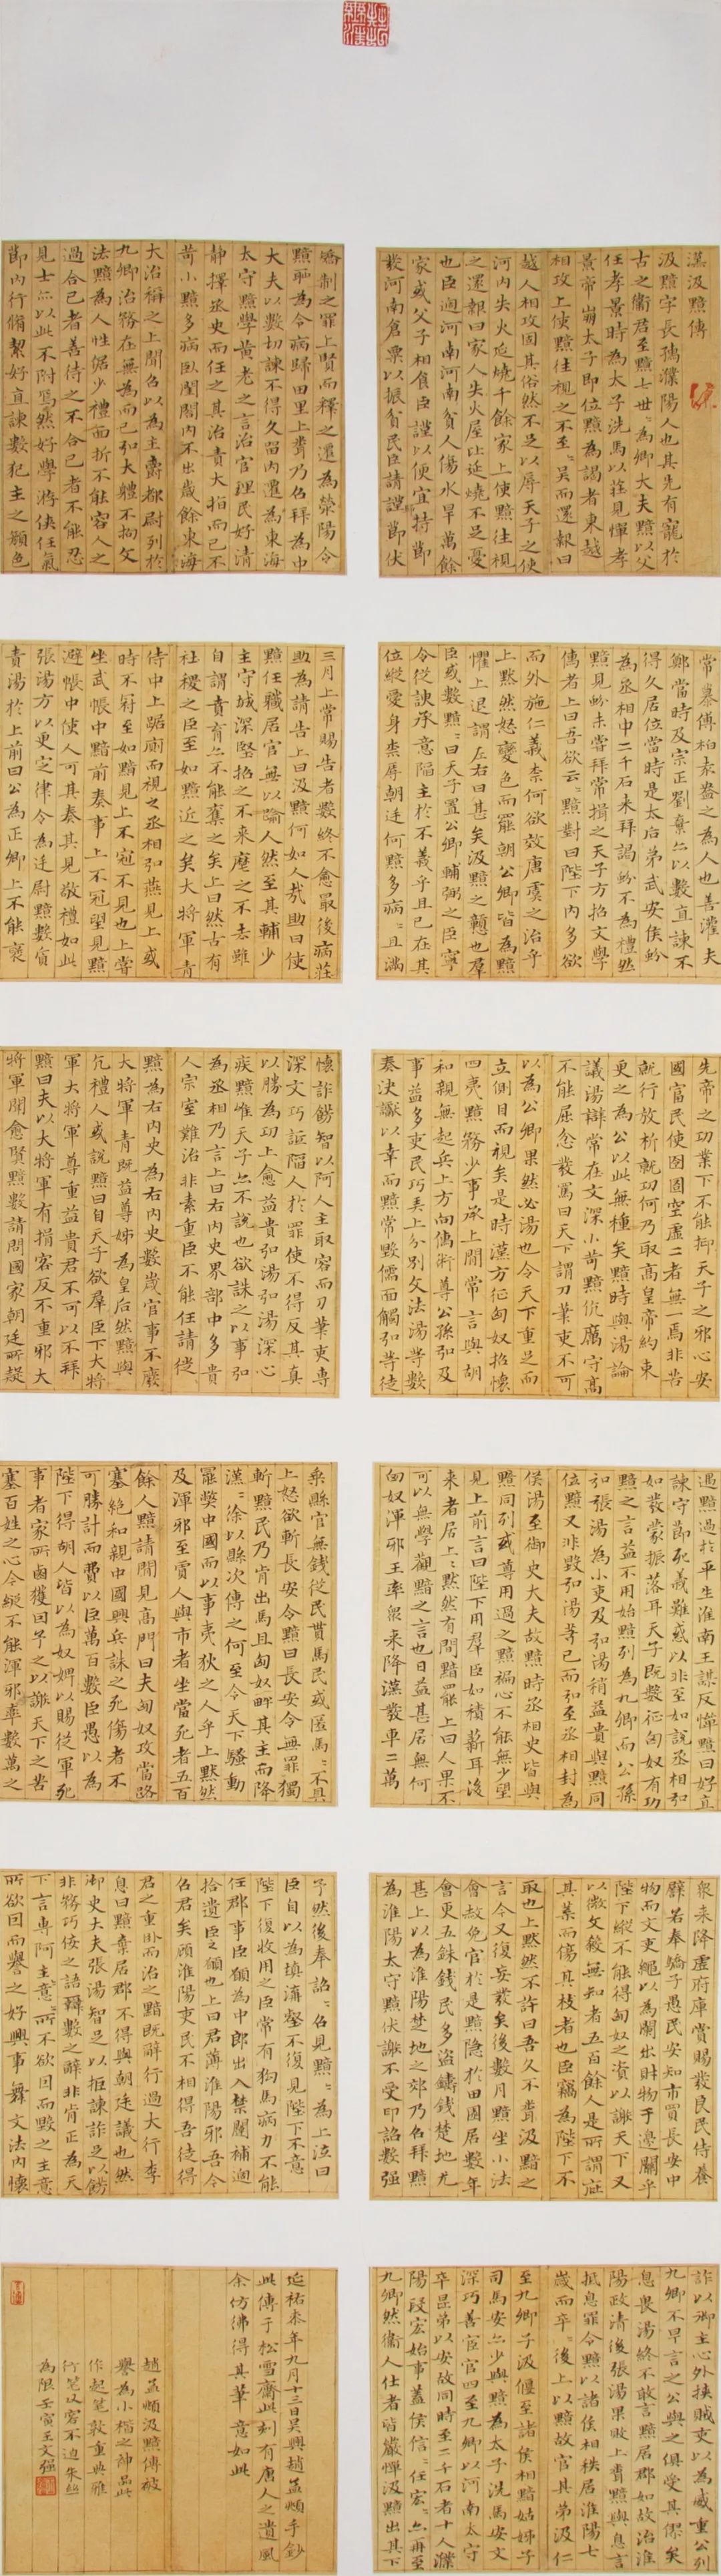 漢汲黯傳
汲黯字長孺濮陽人也其先有寵於
古之衛君至黯七世〻為卿大夫黯以父
任孝景時為太子洗馬以莊見憚孝
景帝崩太子即位黯為謁者東越
相攻上使黯往視之不至〻吳而還報曰
越人相攻固其俗然不足以辱天子之使
河內失火延燒千餘家上使黯往視
之還報曰家人失火屋比延燒不足憂
也臣過河南河南貧人傷水旱萬餘
家或父子相食臣謹以便宜持節
發河南倉粟以振貧民臣請謹節伏
矯制之罪上賢而釋之遷為滎陽令
黯恥為令病歸田里上聞乃召拜為中
大夫以數切諫不得久留內遷為東海
太守黯學黃老之言治官理民好清
靜擇丞史而任之其治責大指而已不
苛小黯多病臥閨閤內不出歲餘東海
大治稱之上聞召以為主爵都尉列於
九卿治務在無為而已弘大體不拘文
法黯為人性倨少禮面折不能容人之
過合己者善待之不合己者不能忍
見士亦以此不附焉然好學游俠任氣
節內行脩絜好直諫數犯主之顏色
常慕傅柏袁盎之為人也善灌夫
鄭當時及宗正劉棄亦以數直諫不
得久居位當時是太后弟武安侯蚡
為丞相中二千石來拜謁蚡不為禮然
黯見蚡未嘗拜常揖之天子方招文學
儒者上曰吾欲云〻黯對曰陛下內多欲
而外施仁義柰何欲效唐虞之治乎
上默然怒變色而罷朝公卿皆為黯
懼上退謂左右曰甚矣汲黯之戇也羣
臣或數黯〻曰天子置公卿輔弼之臣寧
令從諛承意陷主於不義乎且已在其
位縱愛身柰辱朝廷何黯多病〻且滿
三月上常賜告者數終不愈最後病莊
助為請告上曰汲黯何如人哉助曰使
黯任職居官無以踰人然至其輔少
主守城深堅招之不來麾之不去雖
自謂賁育亦不能奪之矣上曰然古有
社稷之臣至如黯近之矣大將軍青
侍中上踞廁而視之丞相弘燕見上或
時不冠至如黯見上不冠不見也上嘗
坐武帳中黯前奏事上不冠望見黯
避帳中使人可其奏其見敬禮如此
張湯方以更定律令為廷尉黯數質
責湯於上前曰公為正卿上不能褒
先帝之功業下不能抑天下之邪心安
國富民使囹圄空虛二者無一焉非苦
就行放析就功何乃取高皇帝約束
更之為公以此無種矣黯時與湯論
議湯辯常在文深小苛黯伉厲守高
不能屈忿發罵曰天下謂刀筆吏不可
以為公卿果然必湯也令天下重足而
立側目而視矣是時漢方征匈奴招懷
四夷黯務少事承上間常言與胡
和親無起兵上方向儒術尊公孫弘及
事益多吏民巧弄上分別文法湯等數
奏決讞以幸而黯常毀儒面觸弘等徒
懷詐飾智以阿人主取容而刀筆吏專
深文巧詆陷人於罪使不得反其真
以勝為功上愈益貴弘湯弘湯深心
疾黯惟天子亦不說也欲誅之以事弘
為丞相乃言上曰右內史界部中多貴
人宗室難治非素重臣不能任請徙
黯為右內史為右內史數歲官事不廢
大將軍青既益尊姊為皇后然黯與
亢禮人或說黯曰自天子欲羣臣下大將
軍大將軍尊重益貴君不可以不拜
黯曰夫以大將軍有揖客反不重邪大
將軍聞愈賢黯數請問國家朝廷所疑
遇黯過於平生淮南王謀反憚黯曰好直
諫守節死義難惑以非至如說丞相弘
如發蒙振落耳天子既數征匈奴有功
黯之言益不用始黯列為九卿而公孫
弘張湯為小吏及弘湯稍益貴與黯同
位黯又非毀弘湯等已而弘至丞相封為
侯湯至御史大夫故黯時丞相史皆與
黯同列或尊用過之黯褊心不能無少望
見上前言曰陛下用羣臣如積薪耳後
來者居上〻默然有間黯罷上曰人果不
可以無學觀黯之言也日益甚居無何
匈奴渾邪王率衆來降漢發車二萬
乘縣官無錢從民貰馬民或匿馬〻不具
上怒欲斬長安令黯曰長安令無罪獨
斬黯民乃肯出馬且匈奴畔其主而降
漢〻徐以縣次傳之何至令天下騷動
罷獘中國而以事夷狄之人乎上默然
及渾邪至賈人與市者坐當死者五百
餘人黯請間見高門曰夫匈奴攻當路
塞絕和親中國興兵誅之死傷者不
可勝計而費以臣萬百數臣愚以為
陛下得胡人皆以為奴婢以賜從軍死
事者家所鹵獲因予之以謝天下之苦
塞百姓之心今縱不能渾邪率數萬之
衆來降虛府庫賞賜發良民侍養
譬若奉驕子愚民安知市買長安中
物而文吏繩以為闌出財物于邊關乎
陛下縱不能得匈奴之資以謝天下又
以微文殺無知者五百餘人是所謂庇
其葉而傷其枝者也臣竊為陛下不
取也上默然不許曰吾久不聞汲黯之
言今又復妄發矣後數月黯坐小法
會赦免官於是黯隱於田園居數年
會更五銖錢民多盜鑄錢楚地尤
甚上以為淮陽楚地之郊乃召拜黯
為淮陽太守黯伏謝不受印詔數強
予然後奉詔〻召見黯〻為上泣曰
臣自以為填溝壑不復見陛下不意
陛下復收用之臣常有狗馬病力不能
任郡事臣願為中郎出入禁闥補過
拾遺臣之願也上曰君薄淮陽邪吾今
召君矣顧淮陽吏民不相得吾徒得
君之重臥而治之黯既辭行過大行李
息曰黯棄居郡不得與朝廷議也然
御史大夫張湯智足以拒諫詐足以飾
非務巧佞之語辯數之辭非肯正為天
下言專阿主意〻所不欲因而毀之主意
所欲因而譽之好興事舞文法內懷
詐以御主心外挾賊吏以為威重公列
九卿不早言之公與之俱受其僇矣
息畏湯終不敢言黯居郡如故治淮
陽政清後張湯果敗上聞黯與息言
抵息罪令黯以諸侯相秩居淮陽七
歲而卒〻後上以黯故官其弟汲仁
至九卿子汲偃至諸侯相黯姑姊子
司馬安亦少與黯為太子洗馬安文
深巧善宦官四至九卿以河南太守
卒昆弟以安故同時至二千石者十人濮
陽段宏始事蓋侯信〻任宏〻亦再至
九卿然衞人仕者皆嚴憚汲黯出其下
延祐柒年九月十三日吳興趙孟頫手鈔
此傳于松雪齋此刻有唐人之遺風
余仿佛得其筆意如此
趙孟頫汲黯傳被
譽為小楷之神品此
作起笔敦重典雅
行笔以容不迫朱丝
為限壬寅王文强